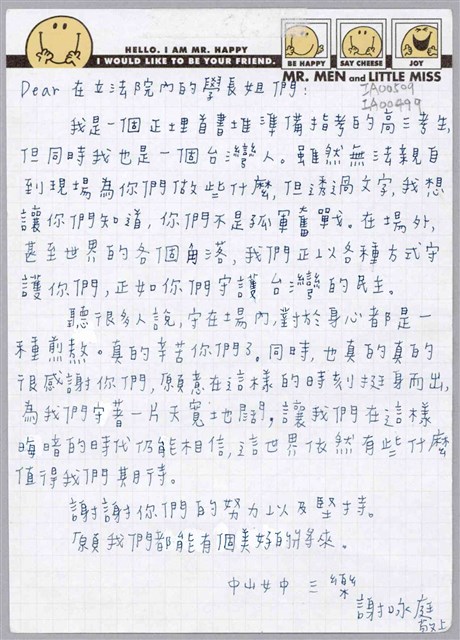 HELLO. I AM MR. HAPPY
I WOULD LIKE TO BE YOUR FRIEND.
BE HAPPY
SAY CHEESE
JOY
MR. MEN and LITTLE MISS
IA00509
IA00499
Dear 在立法院內的學長姐們:
我是一個正埋首書堆準備指考的高三考生,
但同時我也是一個台灣人。雖然無法親自
到現場為你們做些什麼,但透過文字,我想
讓你們知道,你們不是孤軍奮戰。在場外,
甚至世界的各個角落,我們正以各種方式守
護你們,正如你們守護台灣的民主。
聽很多人說,守在場內,對於身心都是一
種煎熬。真的辛苦你們了。同時,也真的真的
很感謝你們,願意在這樣的時刻挺身而出,
為我們守著一片天寬地闊,讓我們在這樣
晦暗的時代仍能相信,這世界依然有些什麼
值得我們期待。
謝謝你們的努力以及堅持。
願我們都能有個美好的將來。
中山女中 三
謝咏庭
敬上